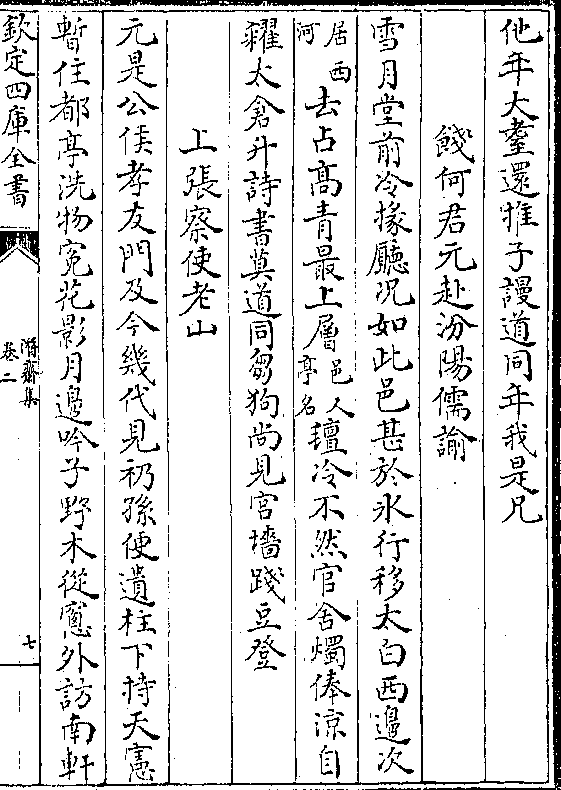 他年大耋還稚子謾道同年我是兄
餞何君元赴汾陽儒諭
雪月堂前冷掾廳况如此邑甚於氷行移太白西邊次
居西河去占髙青最上層邑人亭名氊冷不然官舍燭俸涼自
糴太倉升詩書奠道同芻狗尚見宮墻踐豆登
上張察使老山
元是公侯孝友門及今幾代見礽孫使遺柱下持天憲
暫住都亭洗物寃花影月邊吟子野木從窻外訪南軒
欽定四庫全書
潛齋集
卷二
七